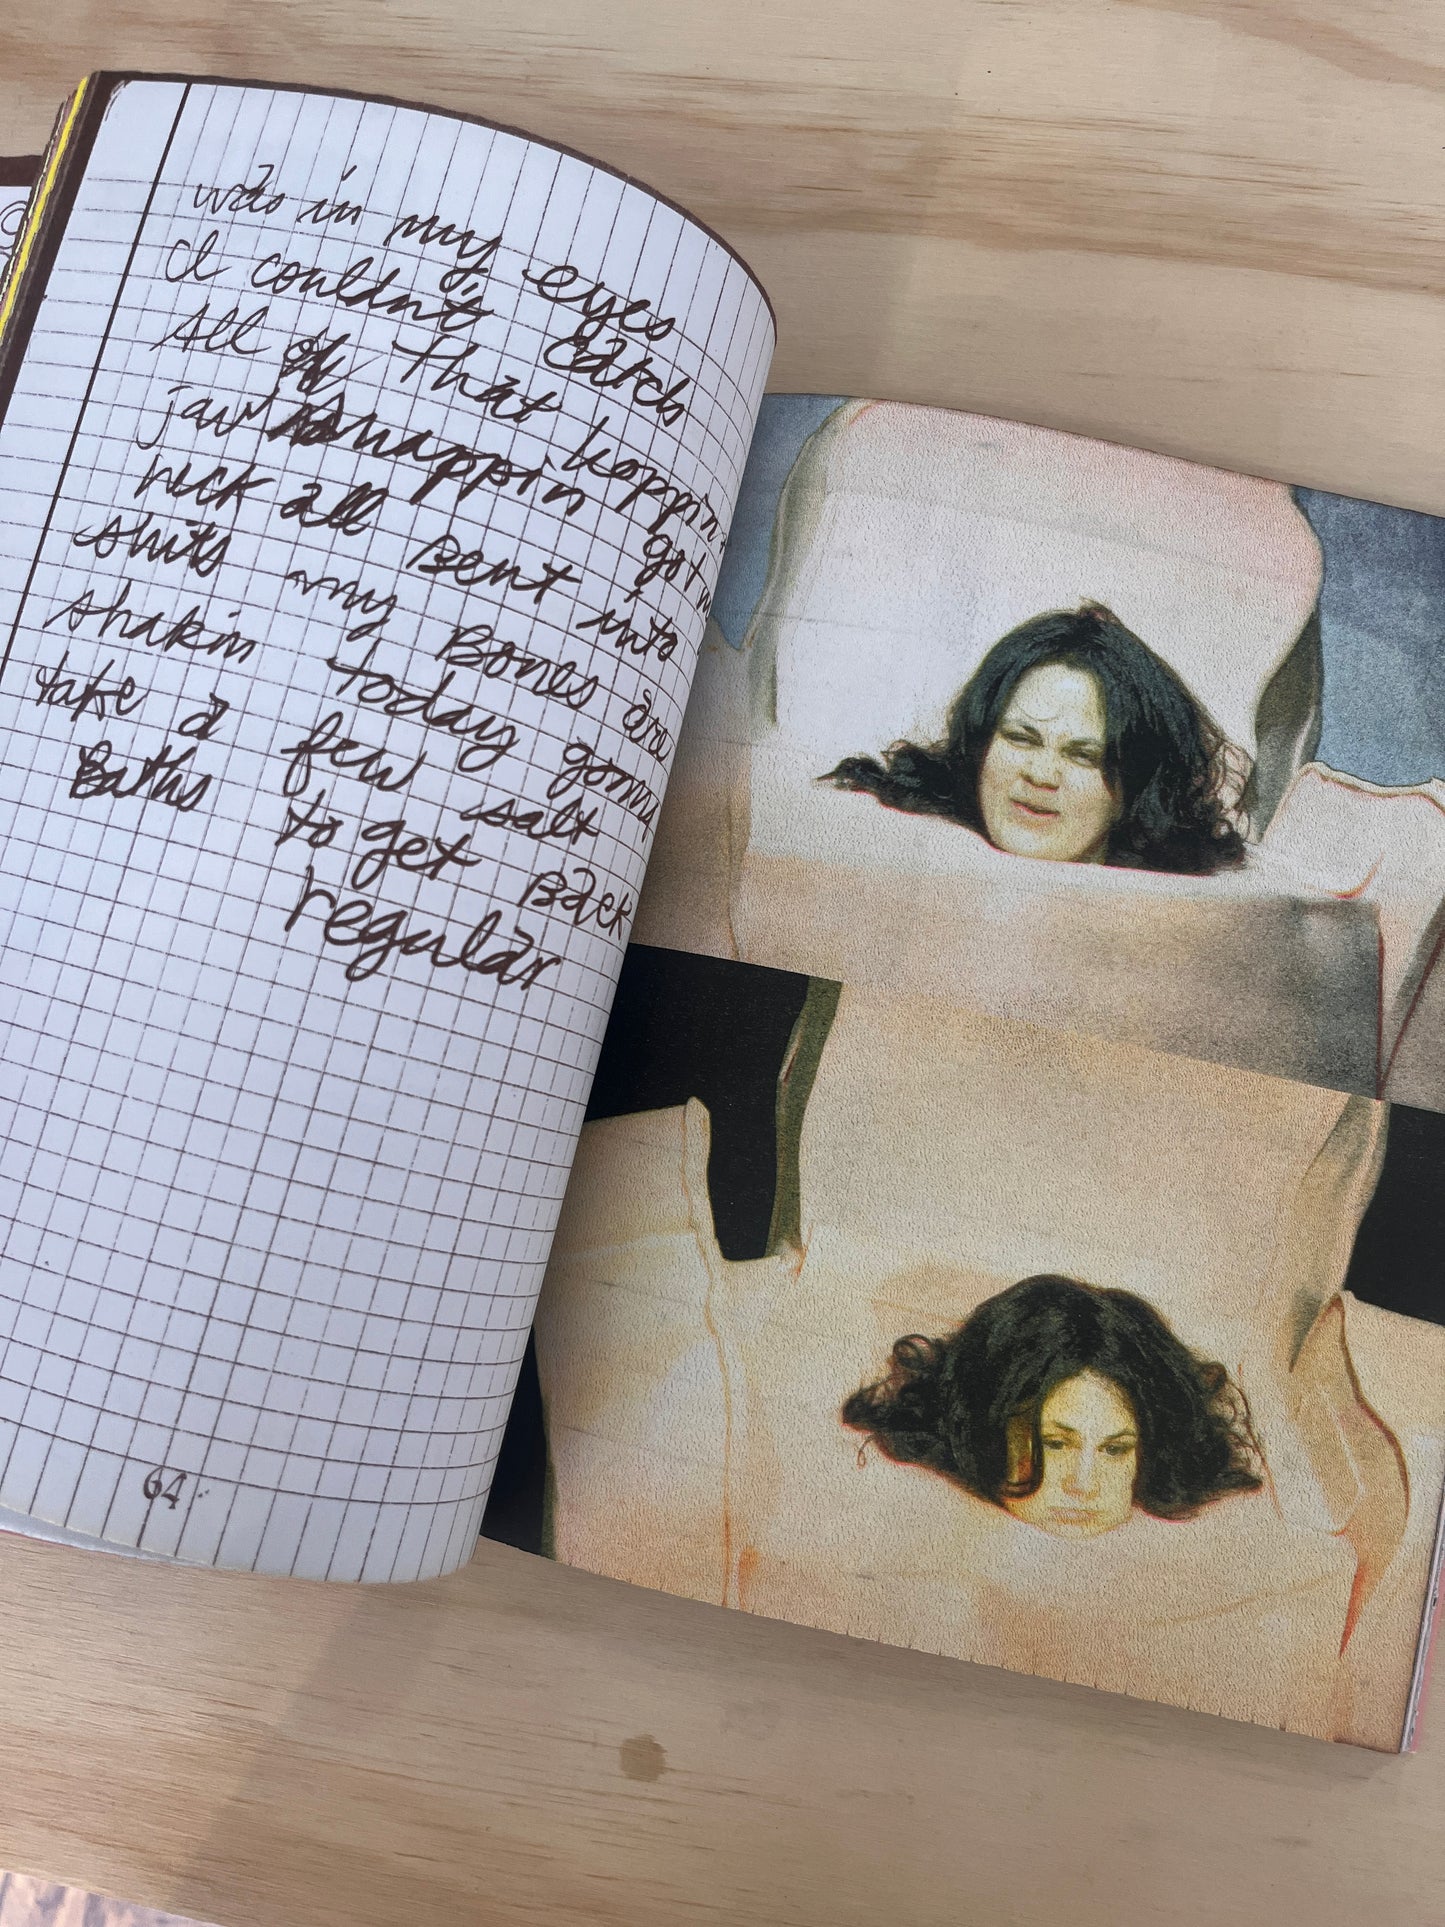 was in my eyes
I couldn't catch
All of that hoppin
jaw snappin got m
neck all Bent into
shits my Bones are
shakin today gonna
take a few salt
Baths to get Back
regular
64